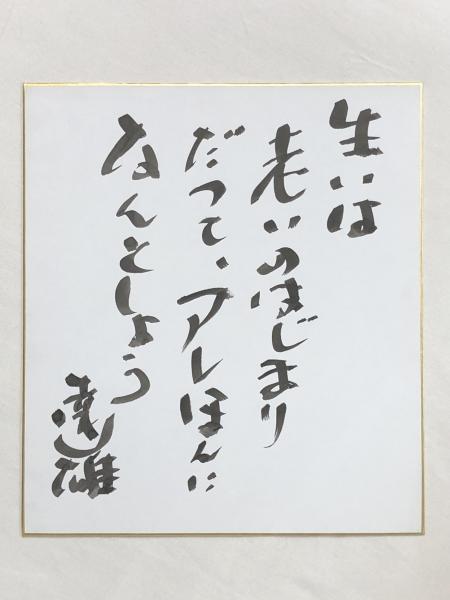 生いは
老いのはじまり
だって、アレほんに
なんとしょう
達雄